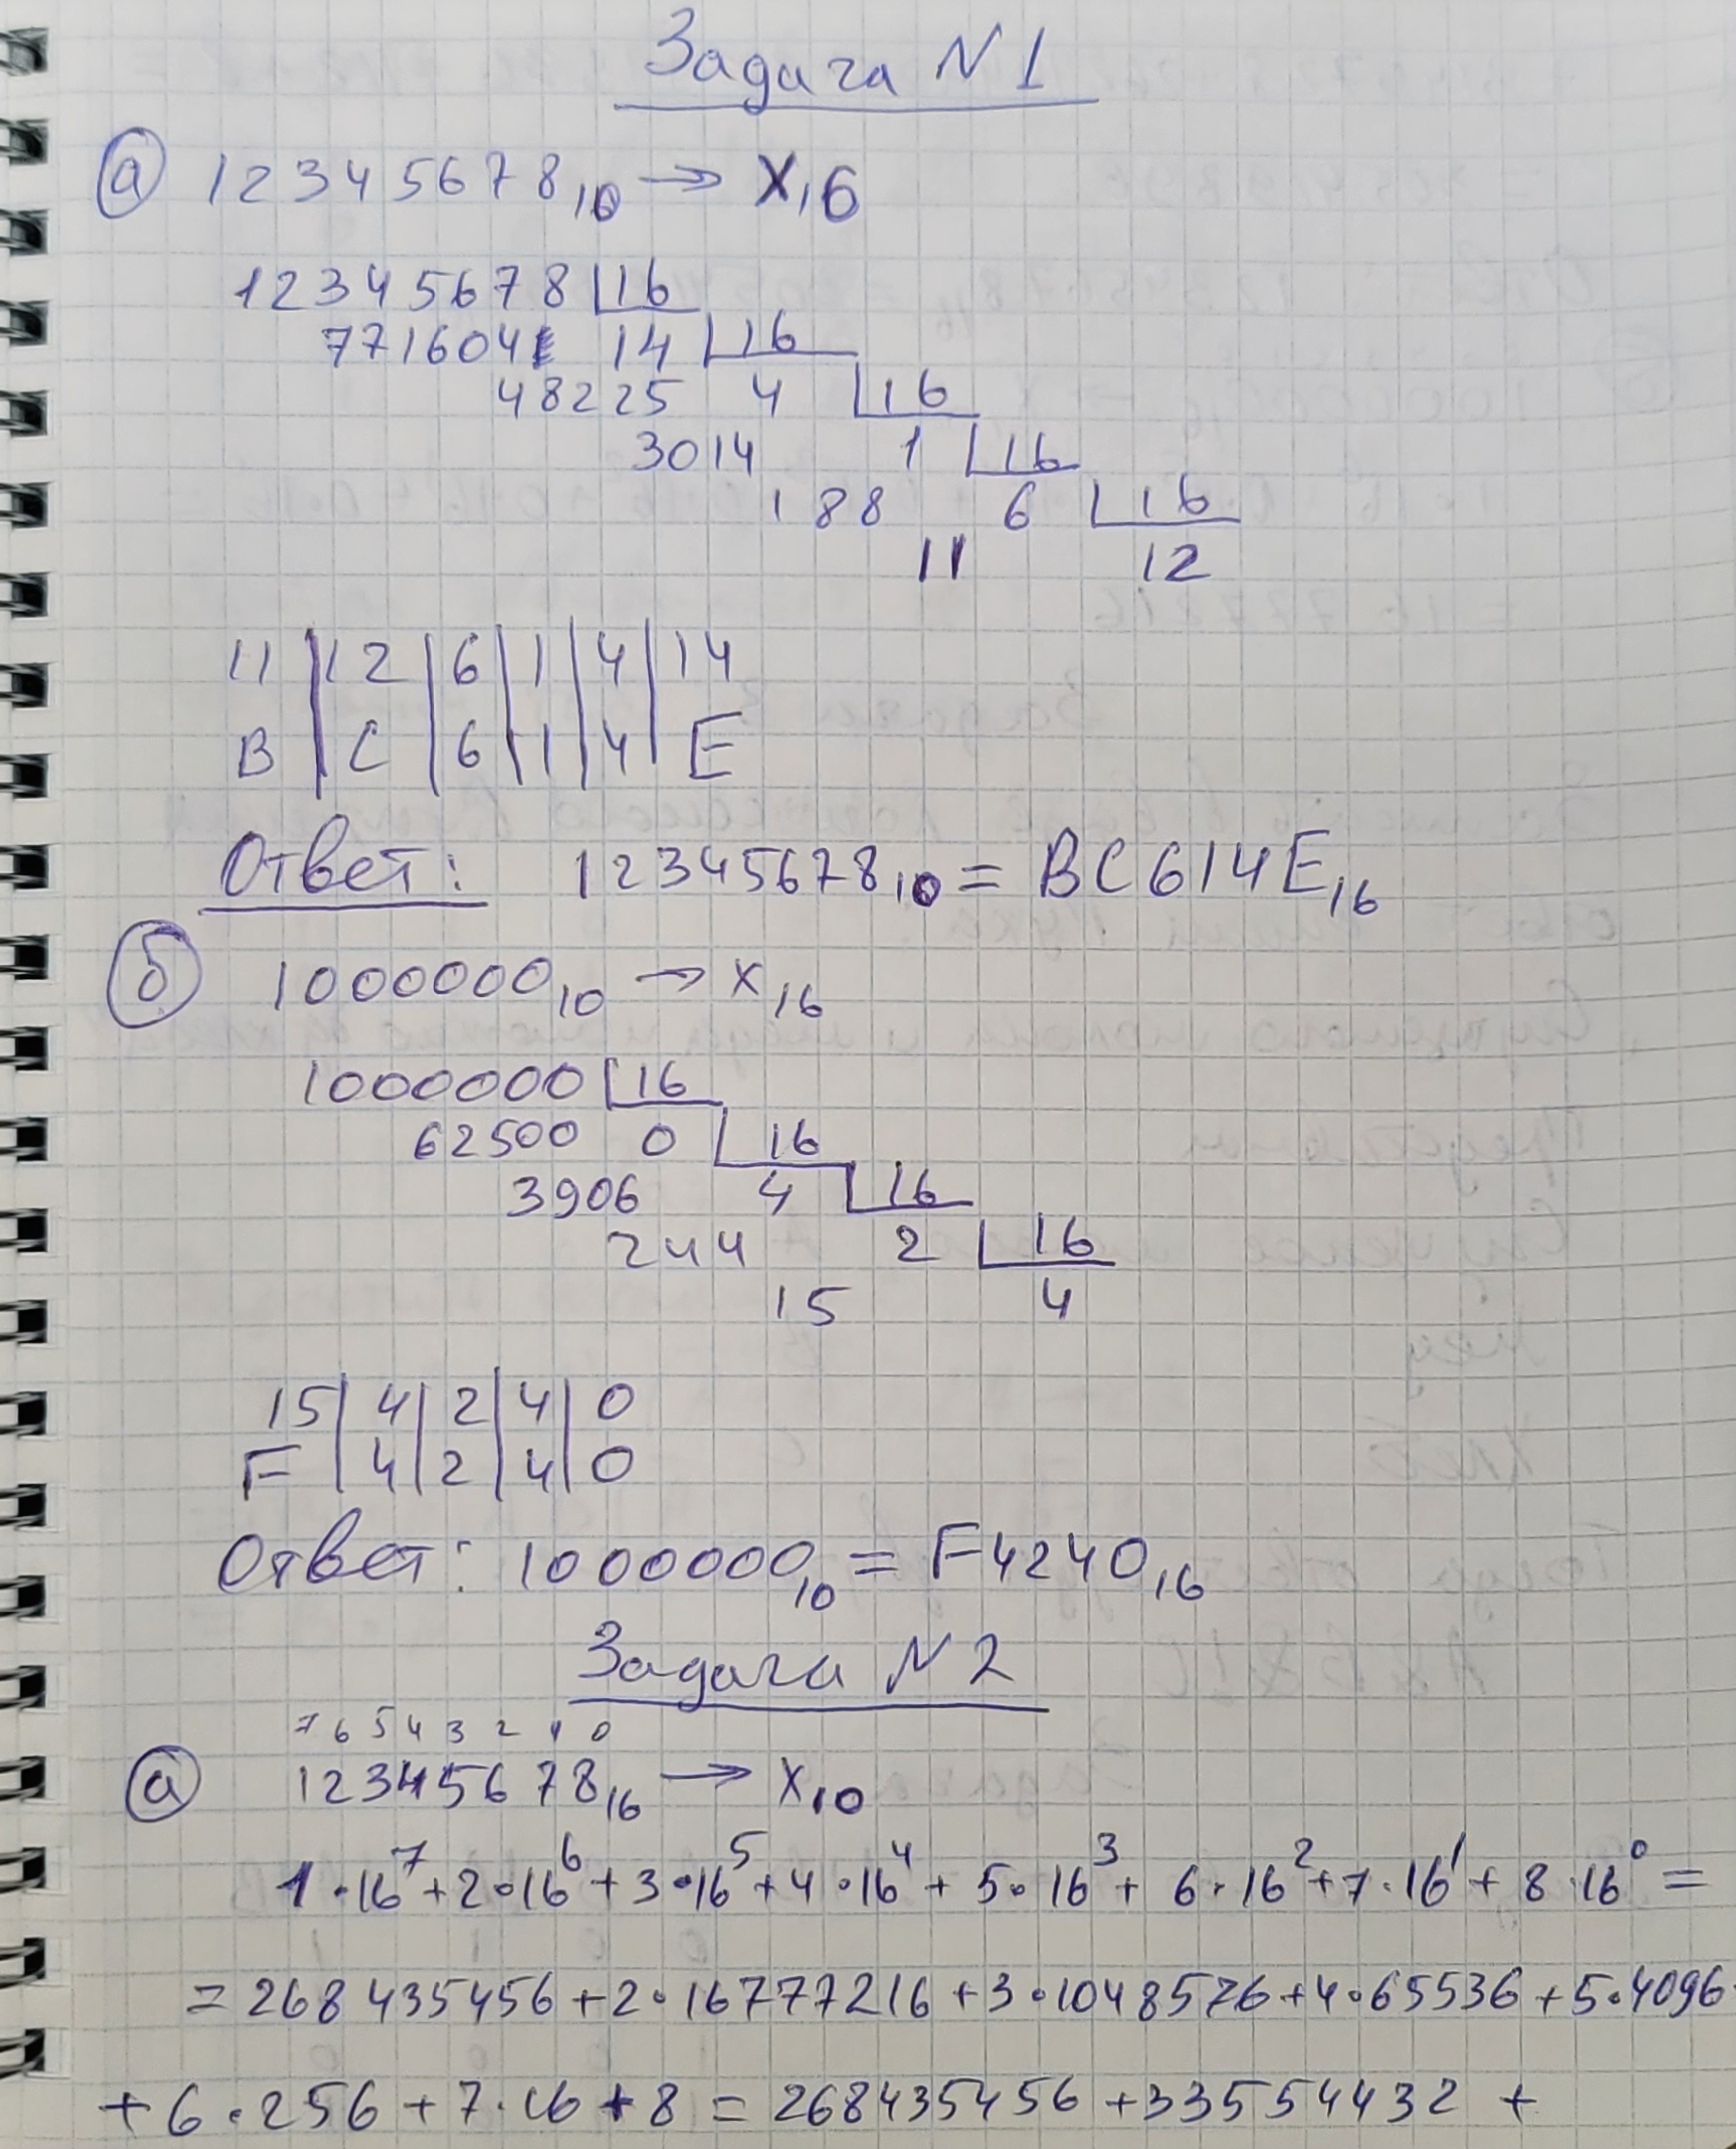 Задача N 1
а 12345678₁₀ → X₁₆
12345678 16
771604 14 16
48225 4 16
3014 1 16
188 6 16
11 12
11 | 12 | 6 | 1 | 4 | 14
B | C | 6 | 1 | 4 | E
Ответ: 12345678₁₀ = BC614E₁₆
б 1000000₁₀ → X₁₆
1000000 16
62500 0 16
3906 4 16
244 2 16
15 4
15 | 4 | 2 | 4 | 0
F | 4 | 2 | 4 | 0
Ответ: 1000000₁₀ = F4240₁₆
Задача N 2
7 6 5 4 3 2 1 0
а 12345678₁₆ → X₁₀
1·16⁷ + 2·16⁶ + 3·16⁵ + 4·16⁴ + 5·16³ + 6·16² + 7·16¹ + 8·16⁰ =
= 268435456 + 2·16777216 + 3·1048576 + 4·65536 + 5·4096
+ 6·256 + 7·16 + 8 = 268435456 + 33554432 +